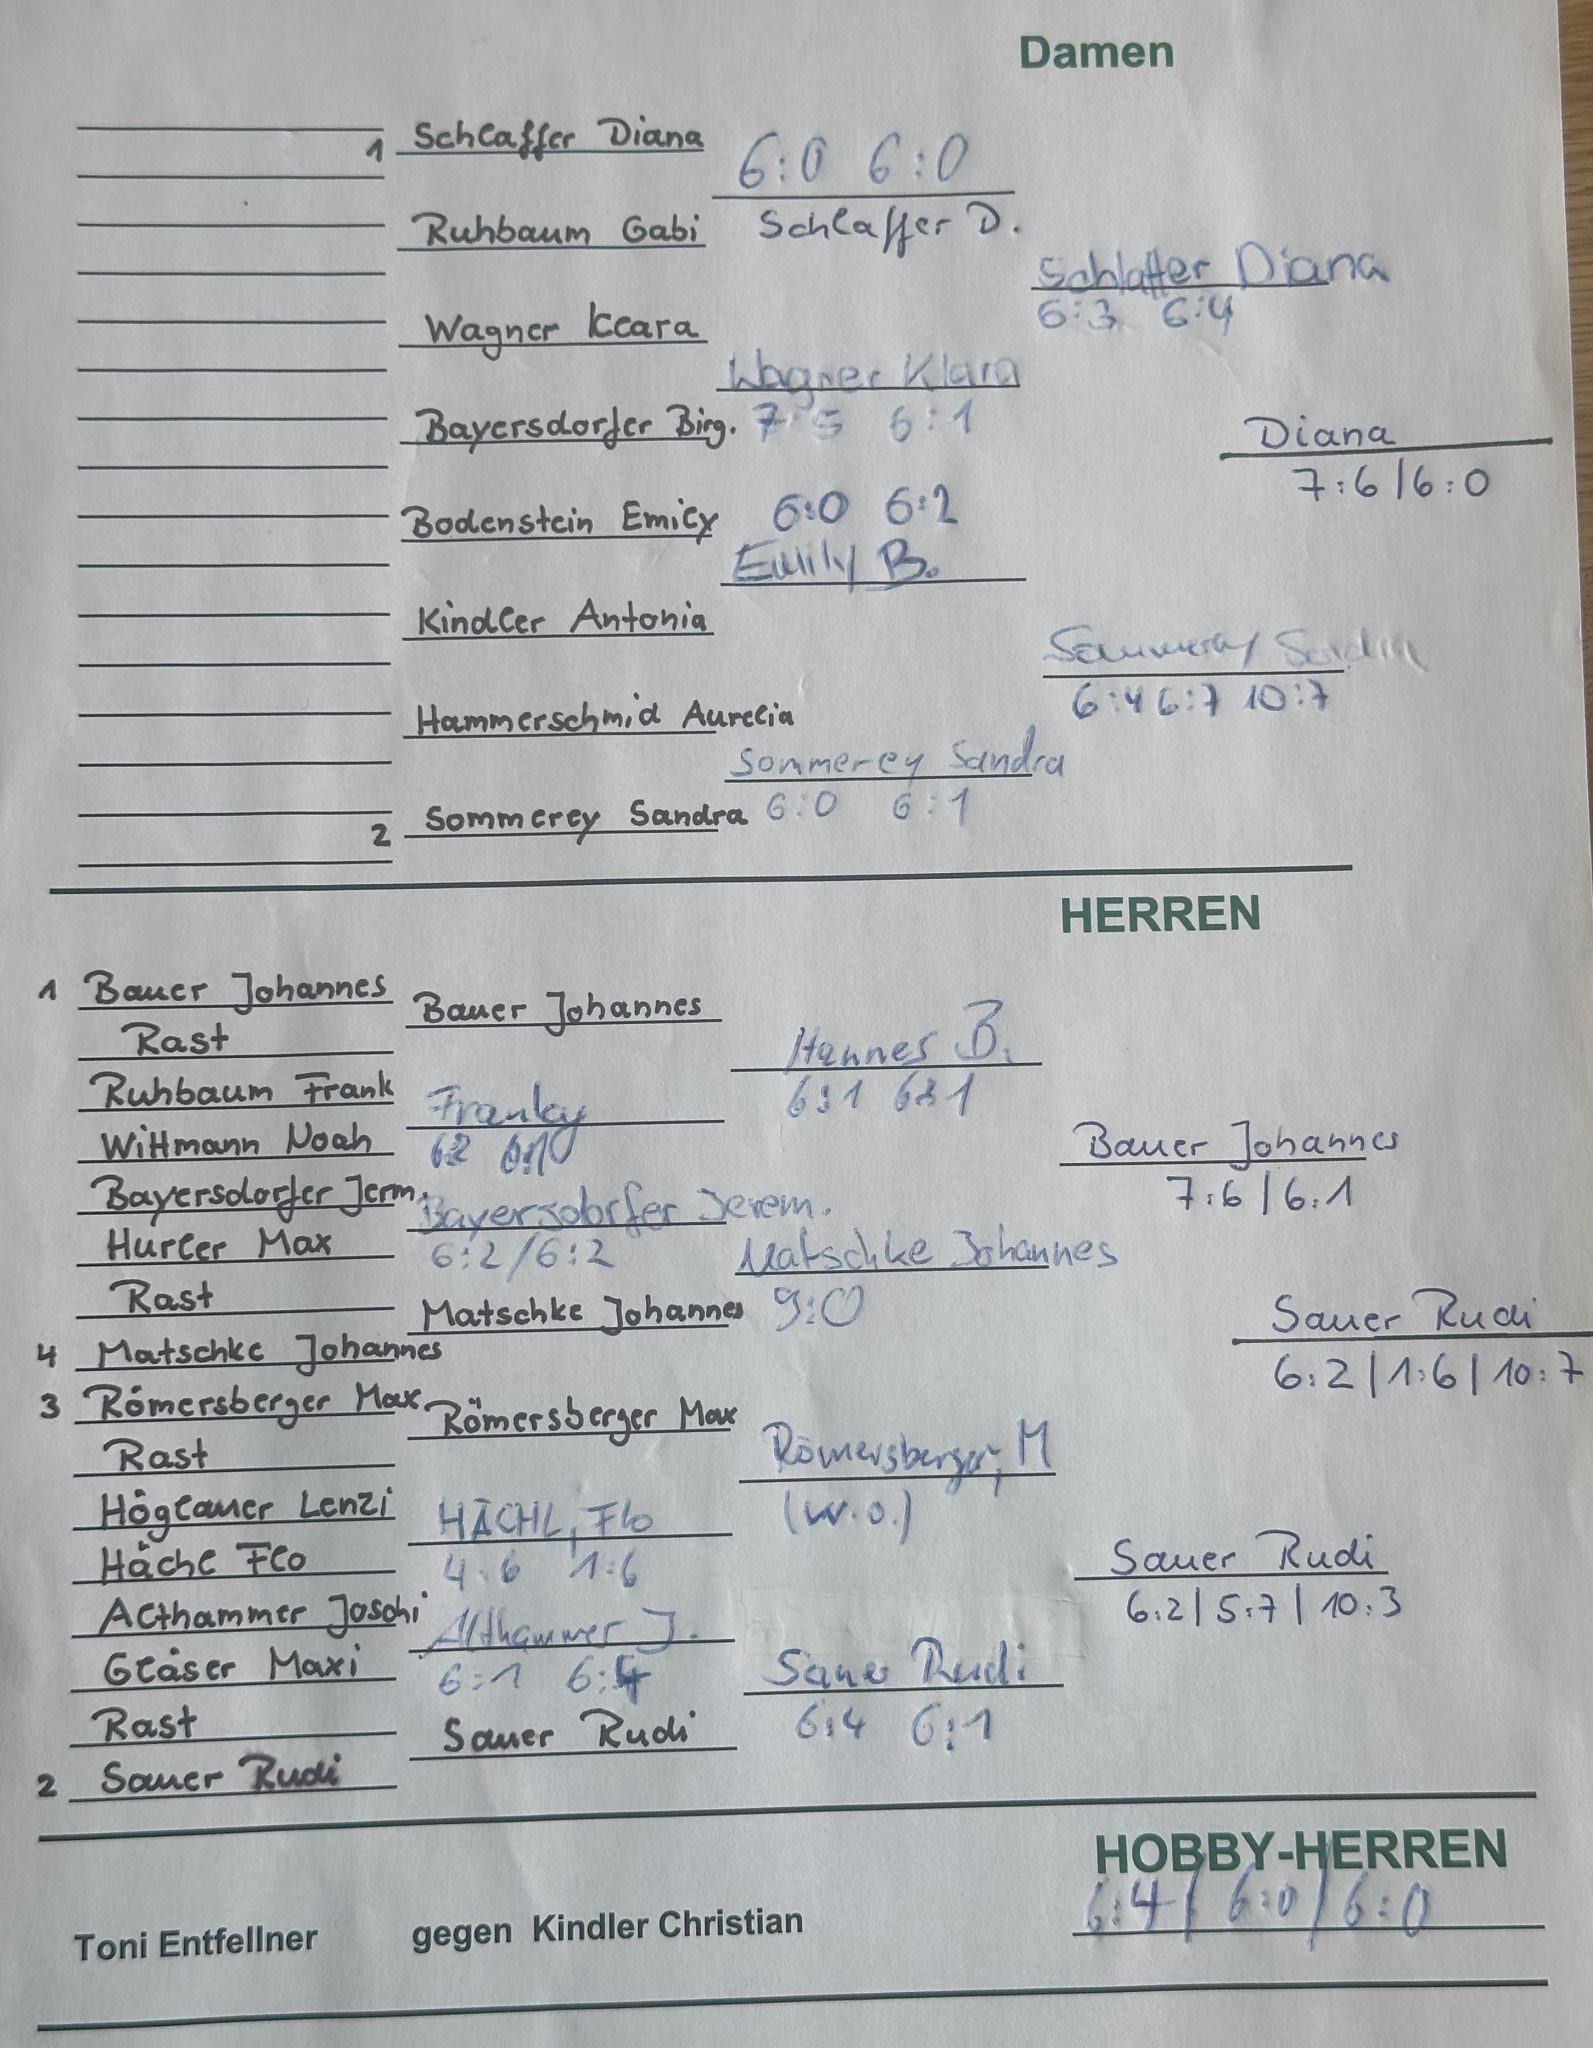 Damen
1 Schlaffer Diana
6:0 6:0
Ruhbaum Gabi
Schlaffer D.
Schlaffer Diana
6:3 6:4
Wagner Klara
Wagner Klara
Bayersdorfer Birg.
7:5 6:1
Diana
7:6 / 6:0
Bodenstein Emily
6:0 6:2
Emily B.
Kindler Antonia
Sommerey Sandra
6:4 6:7 10:7
Hammerschmid Aurelia
Sommerey Sandra
2 Sommerey Sandra
6:0 6:1
HERREN
1 Bauer Johannes
Bauer Johannes
Rast
Hannes B.
6:1 6:1
Ruhbaum Frank
Franky
Wittmann Noah
6:2 6:1
Bauer Johannes
7:6 | 6:1
Bayersdorfer Jerm.
Bayersdorfer Jerem.
Hurler Max
6:2 / 6:2
Matschke Johannes
9:0
Rast
Matschke Johannes
4 Matschke Johannes
Sauer Rudi
6:2 | 1:6 | 10:7
3 Römersberger Max
Römersberger Max
Rast
Römersberger, M
(w.o.)
Höglauer Lenzi
HÄCHL, Flo
Hächl Flo
4:6 1:6
Sauer Rudi
6:2 | 5:7 | 10:3
Althammer Joschi
Althammer J.
Gläser Maxi
6:1 6:4
Sauer Rudi
6:4 6:1
Rast
Sauer Rudi
2 Sauer Rudi
HOBBY-HERREN
6:4 / 6:0 / 6:0
Toni Entfellner gegen Kindler Christian